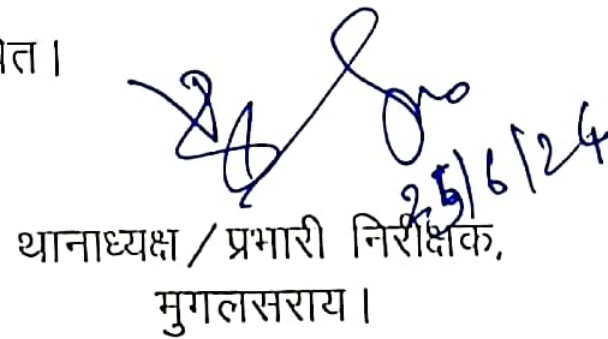 25/6/24
थानाध्यक्ष / प्रभारी निरीक्षक,
मुगलसराय।